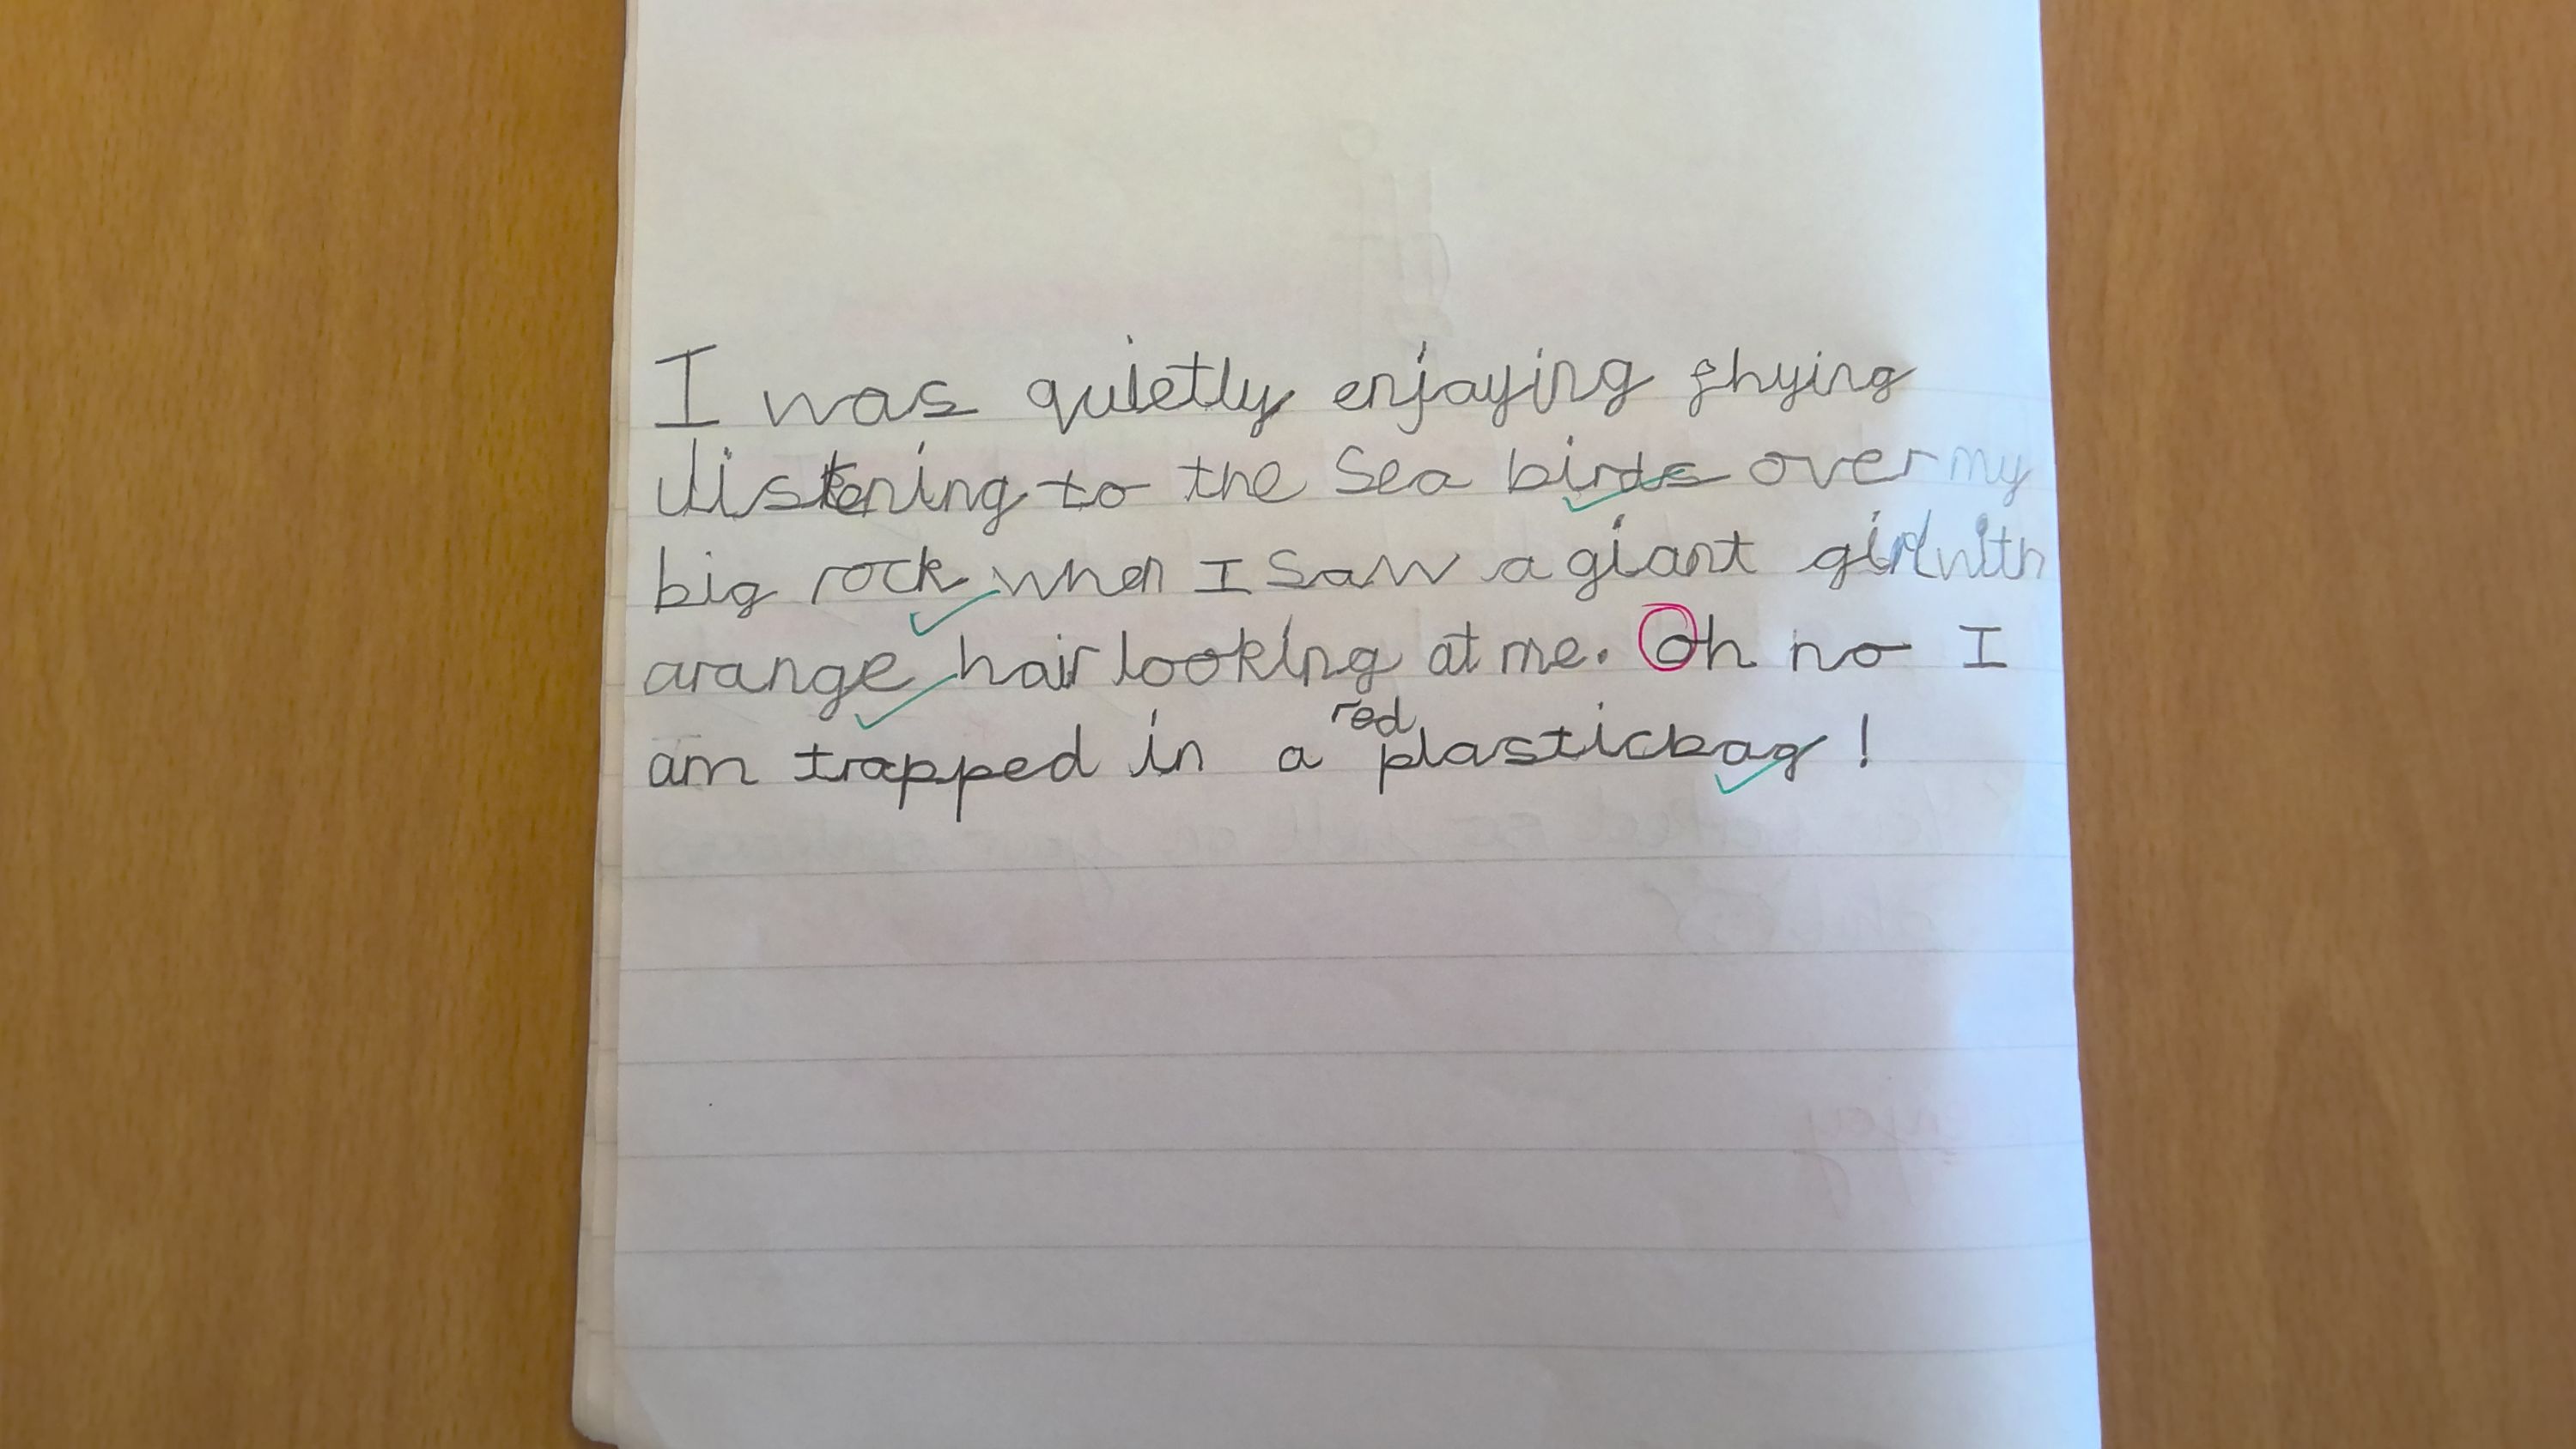 I was quietly enjoying fhying
listening to the Sea birds over my
big rock when I Saw a giant girl with
orange hair looking at me. Oh no I
red
am trapped in a plasticbag !